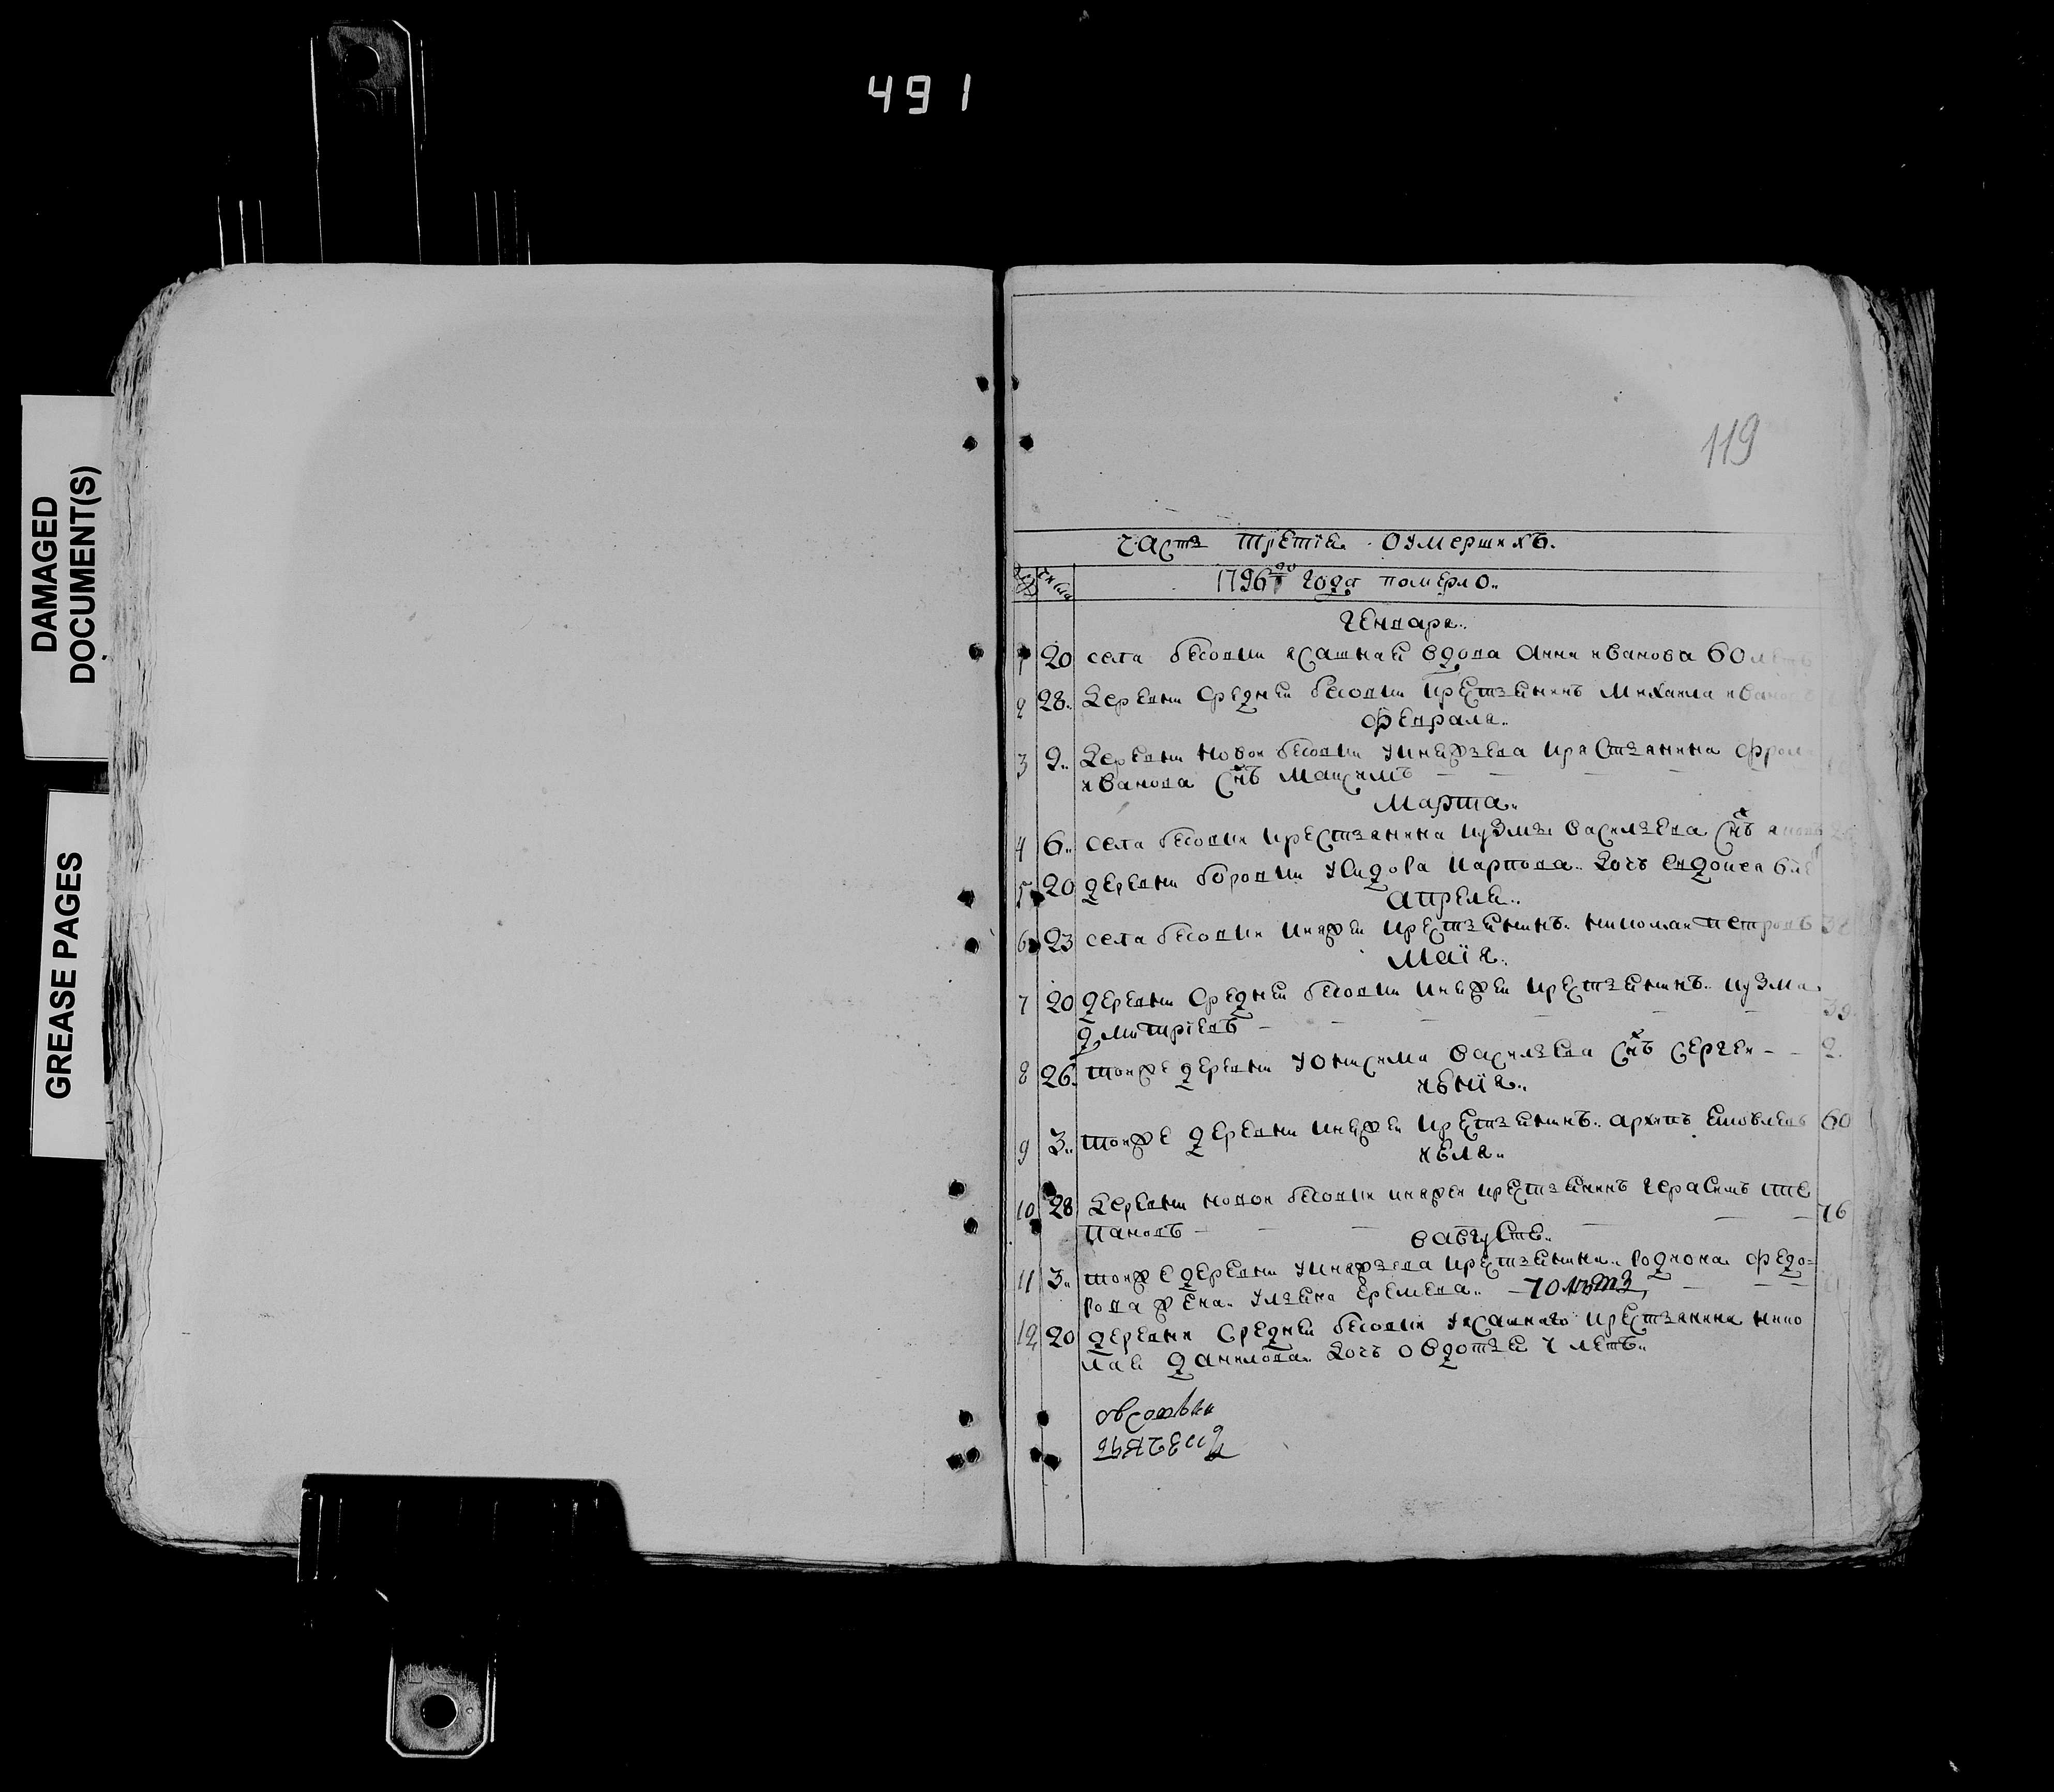 491
DAMAGED
DOCUMENT(S)
GREASE PAGES
119
часть третїя оумершихъ.
1796го года померло..
Генваря..
1 20 села бесовки ясашная вдова Анна иванова 60
2 28. Деревни средней бесовки крестьянинъ Михаила
февраля..
3 2.. Деревни новои бесовки у княжьева крястьянина
иванова снъ Мақсимъ
Марта..
4 6.. села бесовки крестьянина кузмы васильева снъ
5 20 деревни боровки у Карпова.. дочь евдокея
апреля..
6 23 села бесовки княжеи крестьянинъ. николаи петровъ
Маїя.
7 20 деревни средней бесовки княжеи крестьянинъ. кузма 39
дмитрїевъ
8 26. тояже деревни у онисима васильева снъ сергеи 2.
июнїя..
9 3.. тояже деревни княжеи крестьянинъ.. архипъ 60
июля..
10 28 Деревни новои бесовки княжеи крестьянинъ герасимъ сте
пановъ 76
в августе..
11 3.. тояже деревни у княжьева крестьянина.. родиона федо=
рова жена. ульяна еремева.. 70 лѣтъ
12 20 деревни средней бесовки у ясашнаго крестьянина нико
лая данилова.. дочь овдотья 7 летъ..